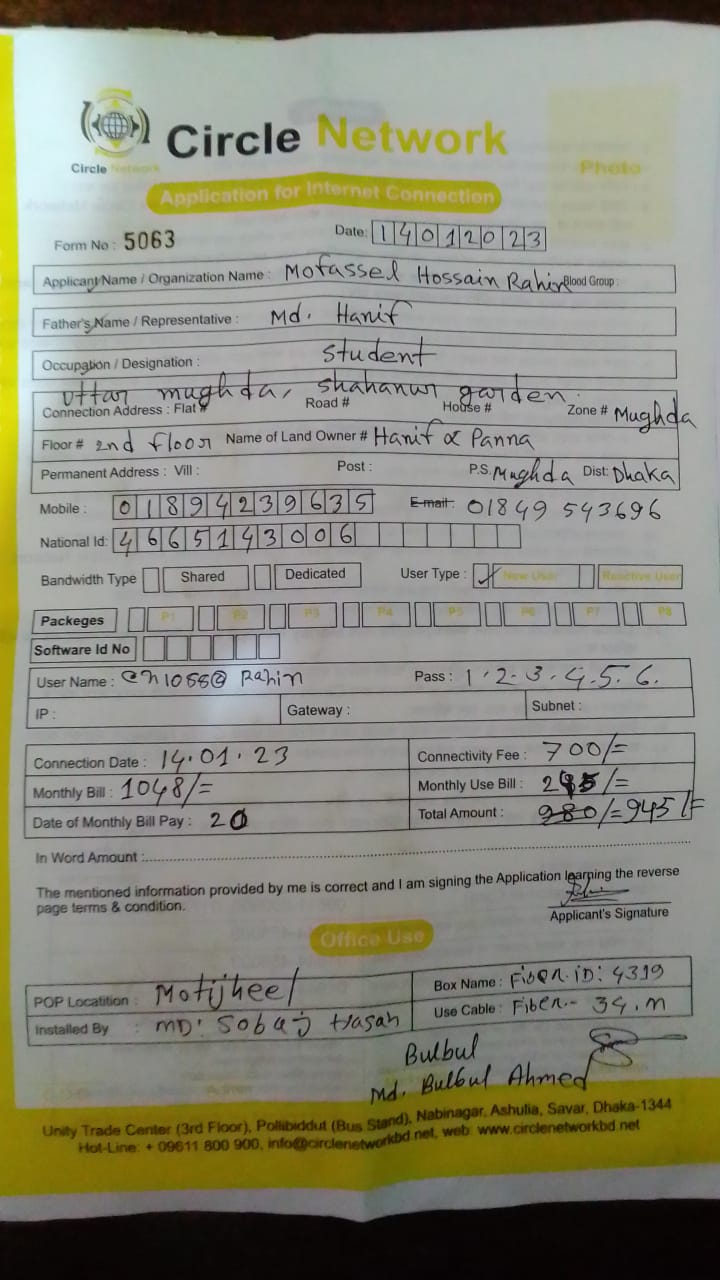 Circle Network
Circle Network
Photo
Application for Internet Connection
Form No : 5063 Date: 14012023
Applicant Name / Organization Name : Mofassel Hossain Rahin Blood Group :
Father's Name / Representative : Md. Hanif
Occupation / Designation : Student
Uttar mughda, shahanur garden.
Connection Address : Flat # Road # House # Zone # Mughda
Floor # 2nd floor Name of Land Owner # Hanif & Panna
Permanent Address : Vill : Post : P.S. Mughda Dist: Dhaka
Mobile : 01894239635 E-mail: 01849 543696
National Id: 4665143006
Bandwidth Type Shared Dedicated User Type : ✓ New User Reactive User
Packeges P1 P2 P3 P4 P5 P6 P7 P8
Software Id No
User Name : Rahin Pass : 1.2.3.4.5.6.
IP : Gateway : Subnet :
Connection Date : 14.01.23 Connectivity Fee : 700/=
Monthly Bill : 1048/= Monthly Use Bill : /=
Date of Monthly Bill Pay : 20 Total Amount : 980/= 945/=
In Word Amount :
The mentioned information provided by me is correct and I am signing the Application learning the reverse
page terms & condition.
Applicant's Signature
Office Use
POP Locatition : Motijheel Box Name : Fiber. iD: 4319
Installed By : MD: Sobuj Hasan Use Cable : Fiber.- 34.m
Bulbul
Md. Bulbul Ahmed
Unity Trade Center (3rd Floor), Pollibiddut (Bus Stand), Nabinagar, Ashulia, Savar, Dhaka-1344
Hot-Line: + 09611 800 900, info@circlenetworkbd.net, web: www.circlenetworkbd.net